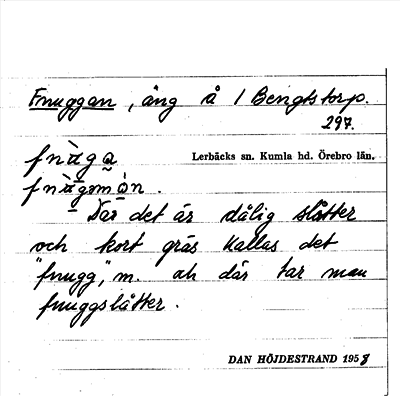 Fnuggan, äng å 1 Bengtstorp.
297.
Lerbäcks sn. Kumla hd. Örebro län.
Där det är dålig slåtter
och kort gräs kallas det
"fnugg", m. ah där tar man
fnuggslåtter.
DAN HÖJDESTRAND 1958